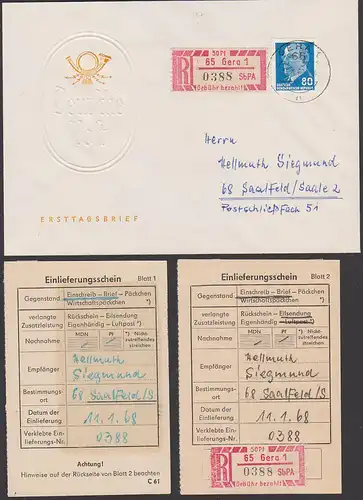 50 Pf
65 Gera 1
R
0388 SbPA
Gebühr bezahlt
80
Herrn
Hellmuth Siegmund
68 Saalfeld/Saale 2
Postschließfach 51
ERSTTAGSBRIEF
Einlieferungsschein Blatt 1
Gegenstand Einschreib – Brief – Päckchen
Wirtschaftspäckchen *)
verlangte Zusatzleistung Rückschein – Eilsendung
Eigenhändig – Luftpost *)
Nachnahme MDN Pf *) Nicht-
zutreffendes
streichen
Empfänger Hellmuth
Siegmund
Bestimmungs-
ort 68 Saalfeld/S
Datum der
Einlieferung 11.1.68
Verklebte Ein-
lieferungs-Nr. 0388
Achtung!
Hinweise auf der Rückseite von Blatt 2 beachten
C 61
Einlieferungsschein Blatt 2
Gegenstand Einschreib – Brief – Päckchen
Wirtschaftspäckchen *)
verlangte Zusatzleistung Rückschein – Eilsendung
Eigenhändig – Luftpost *)
Nachnahme MDN Pf *) Nicht-
zutreffendes
streichen
Empfänger Hellmuth
Siegmund
Bestimmungs-
ort 68 Saalfeld/S
Datum der
Einlieferung 11.1.68
Verklebte Ein-
lieferungs-Nr. 0388
50 Pf
65 Gera 1
R
0388 SbPA
Gebühr bezahlt